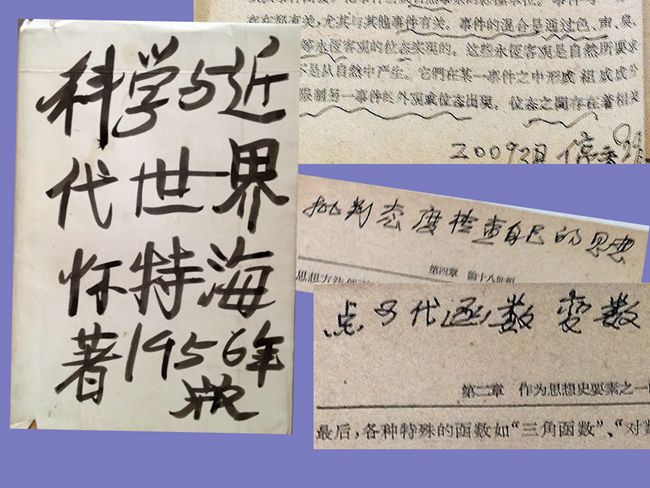 科学与近
代世界
怀特海
著1956年
版
存在都有关,尤其与其他事件有关。事件的混合是通过色、声、臭、
等永恆客观的位态实现的。这些永恆客观是自然所要求
不是从自然中产生。它們在某一事件之中形成組成成分
限制另一事件的外貌或位态出現。位态之間存在着相关
2009 2月
批判态度检查自己的思想
第四章 前十八世紀
思想方法
点子代函数变数
第二章 作为思想史要素之一
最后,各种特殊的函数如“三角函数”、“对数